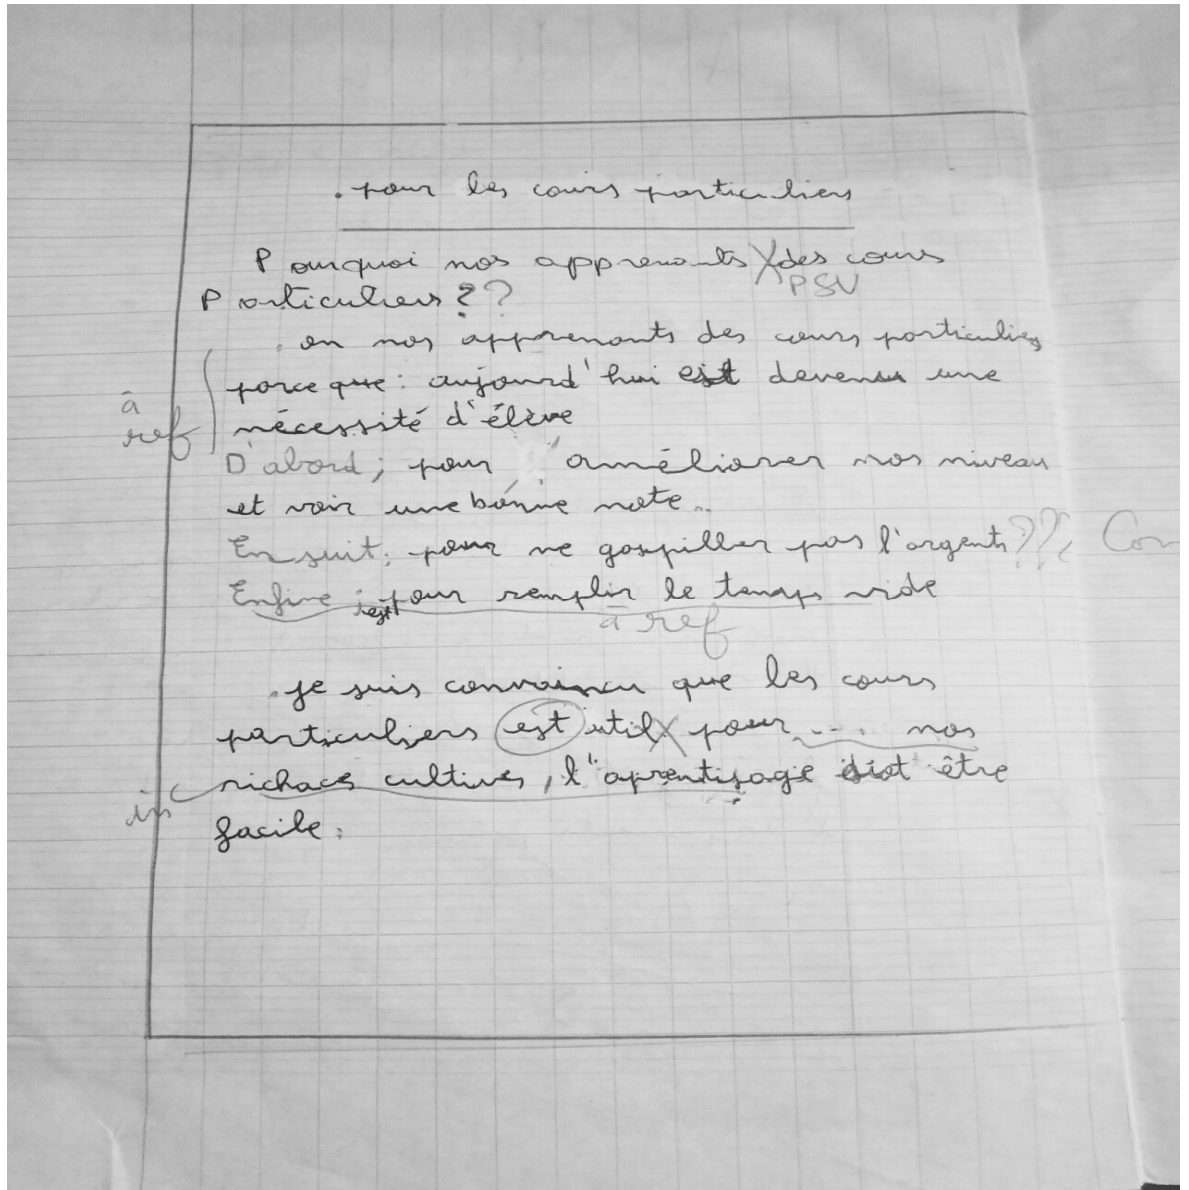 . pour les cours particuliers
Pourquoi nos apprenants X des cours
PSV
Particuliers ??
. on nos apprenants des cours particuliers
parce que : aujourd'hui est devenu une
à
ref
nécessité d'élève
D'abord ; pour améliorer nos niveau
et voir une bonne note..
En suit ; pour ne gaspiller pas l'argents ??? Con
Enfine ; pour remplir le temps vide
à ref
. je suis convaincu que les cours
particuliers est util X pour .... nos
richaces cultives, l'aprentisage doit être
in
facile.